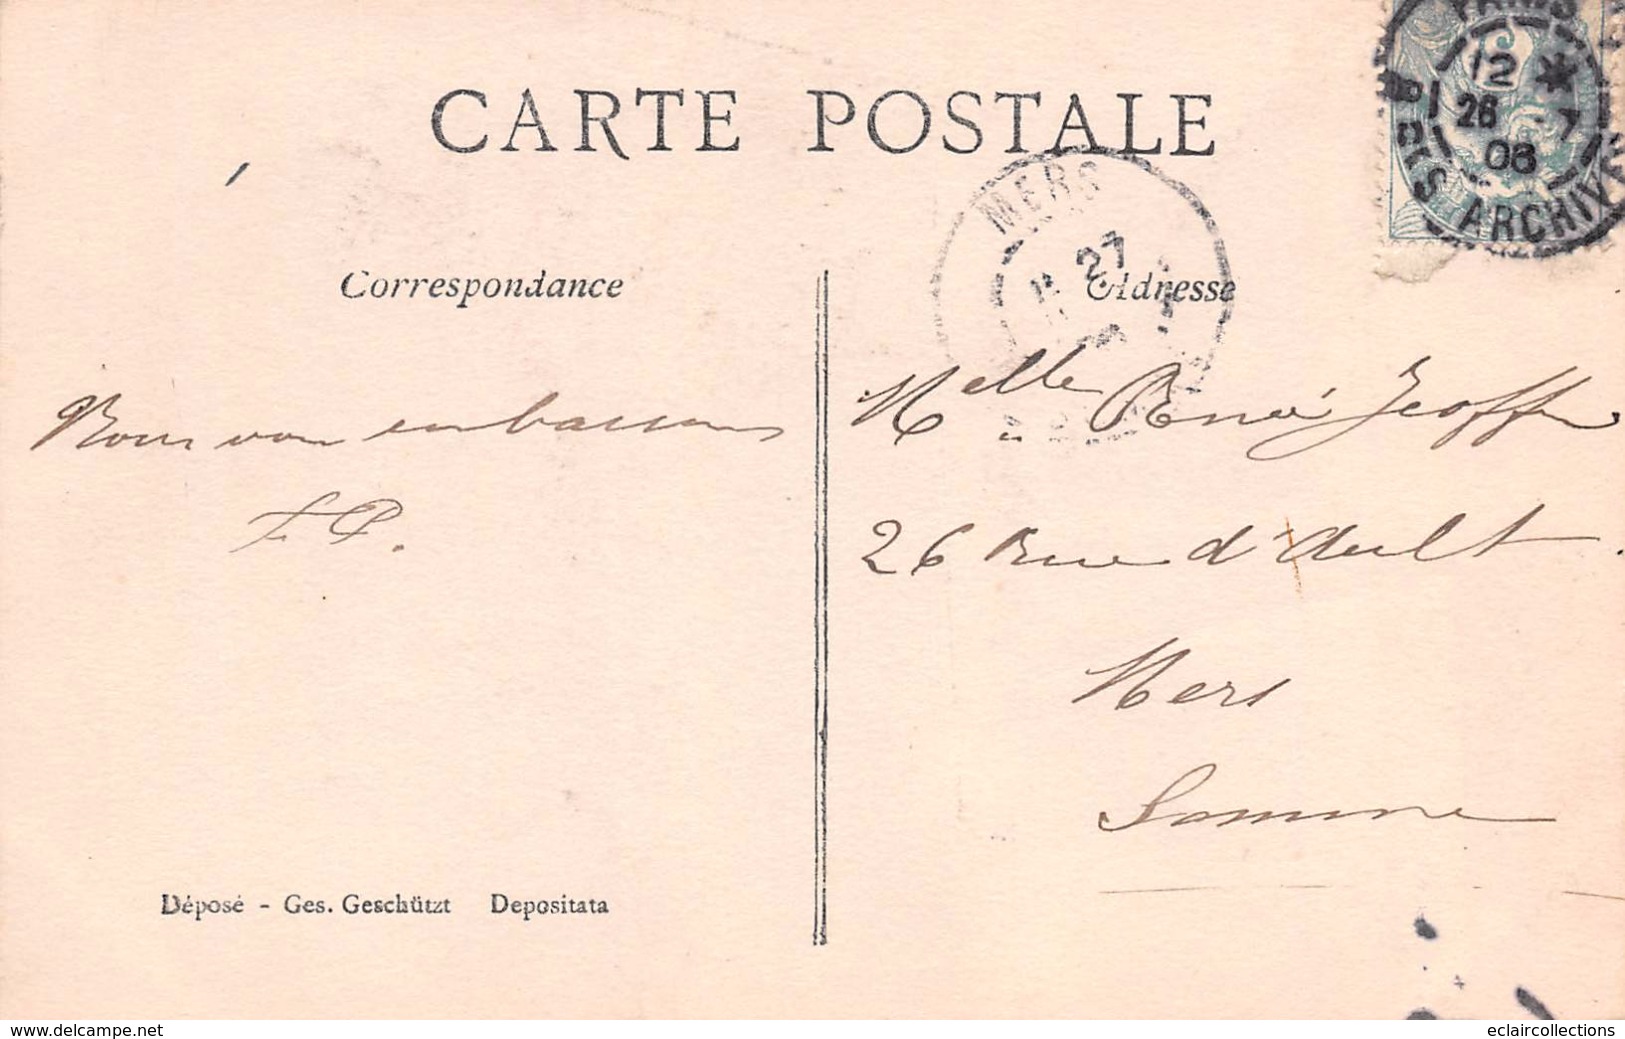 CARTE POSTALE
PARIS
12 *
26 -7
06
R. DES ARCHIVES
MERS
27
Correspondance
Adresse
Nous vous embrassons
F. P.
Melle Renée Geoffr
26 Rue d'Ault
Mers
Somme
Déposé - Ges. Geschützt Depositata
www.delcampe.net
eclaircollections